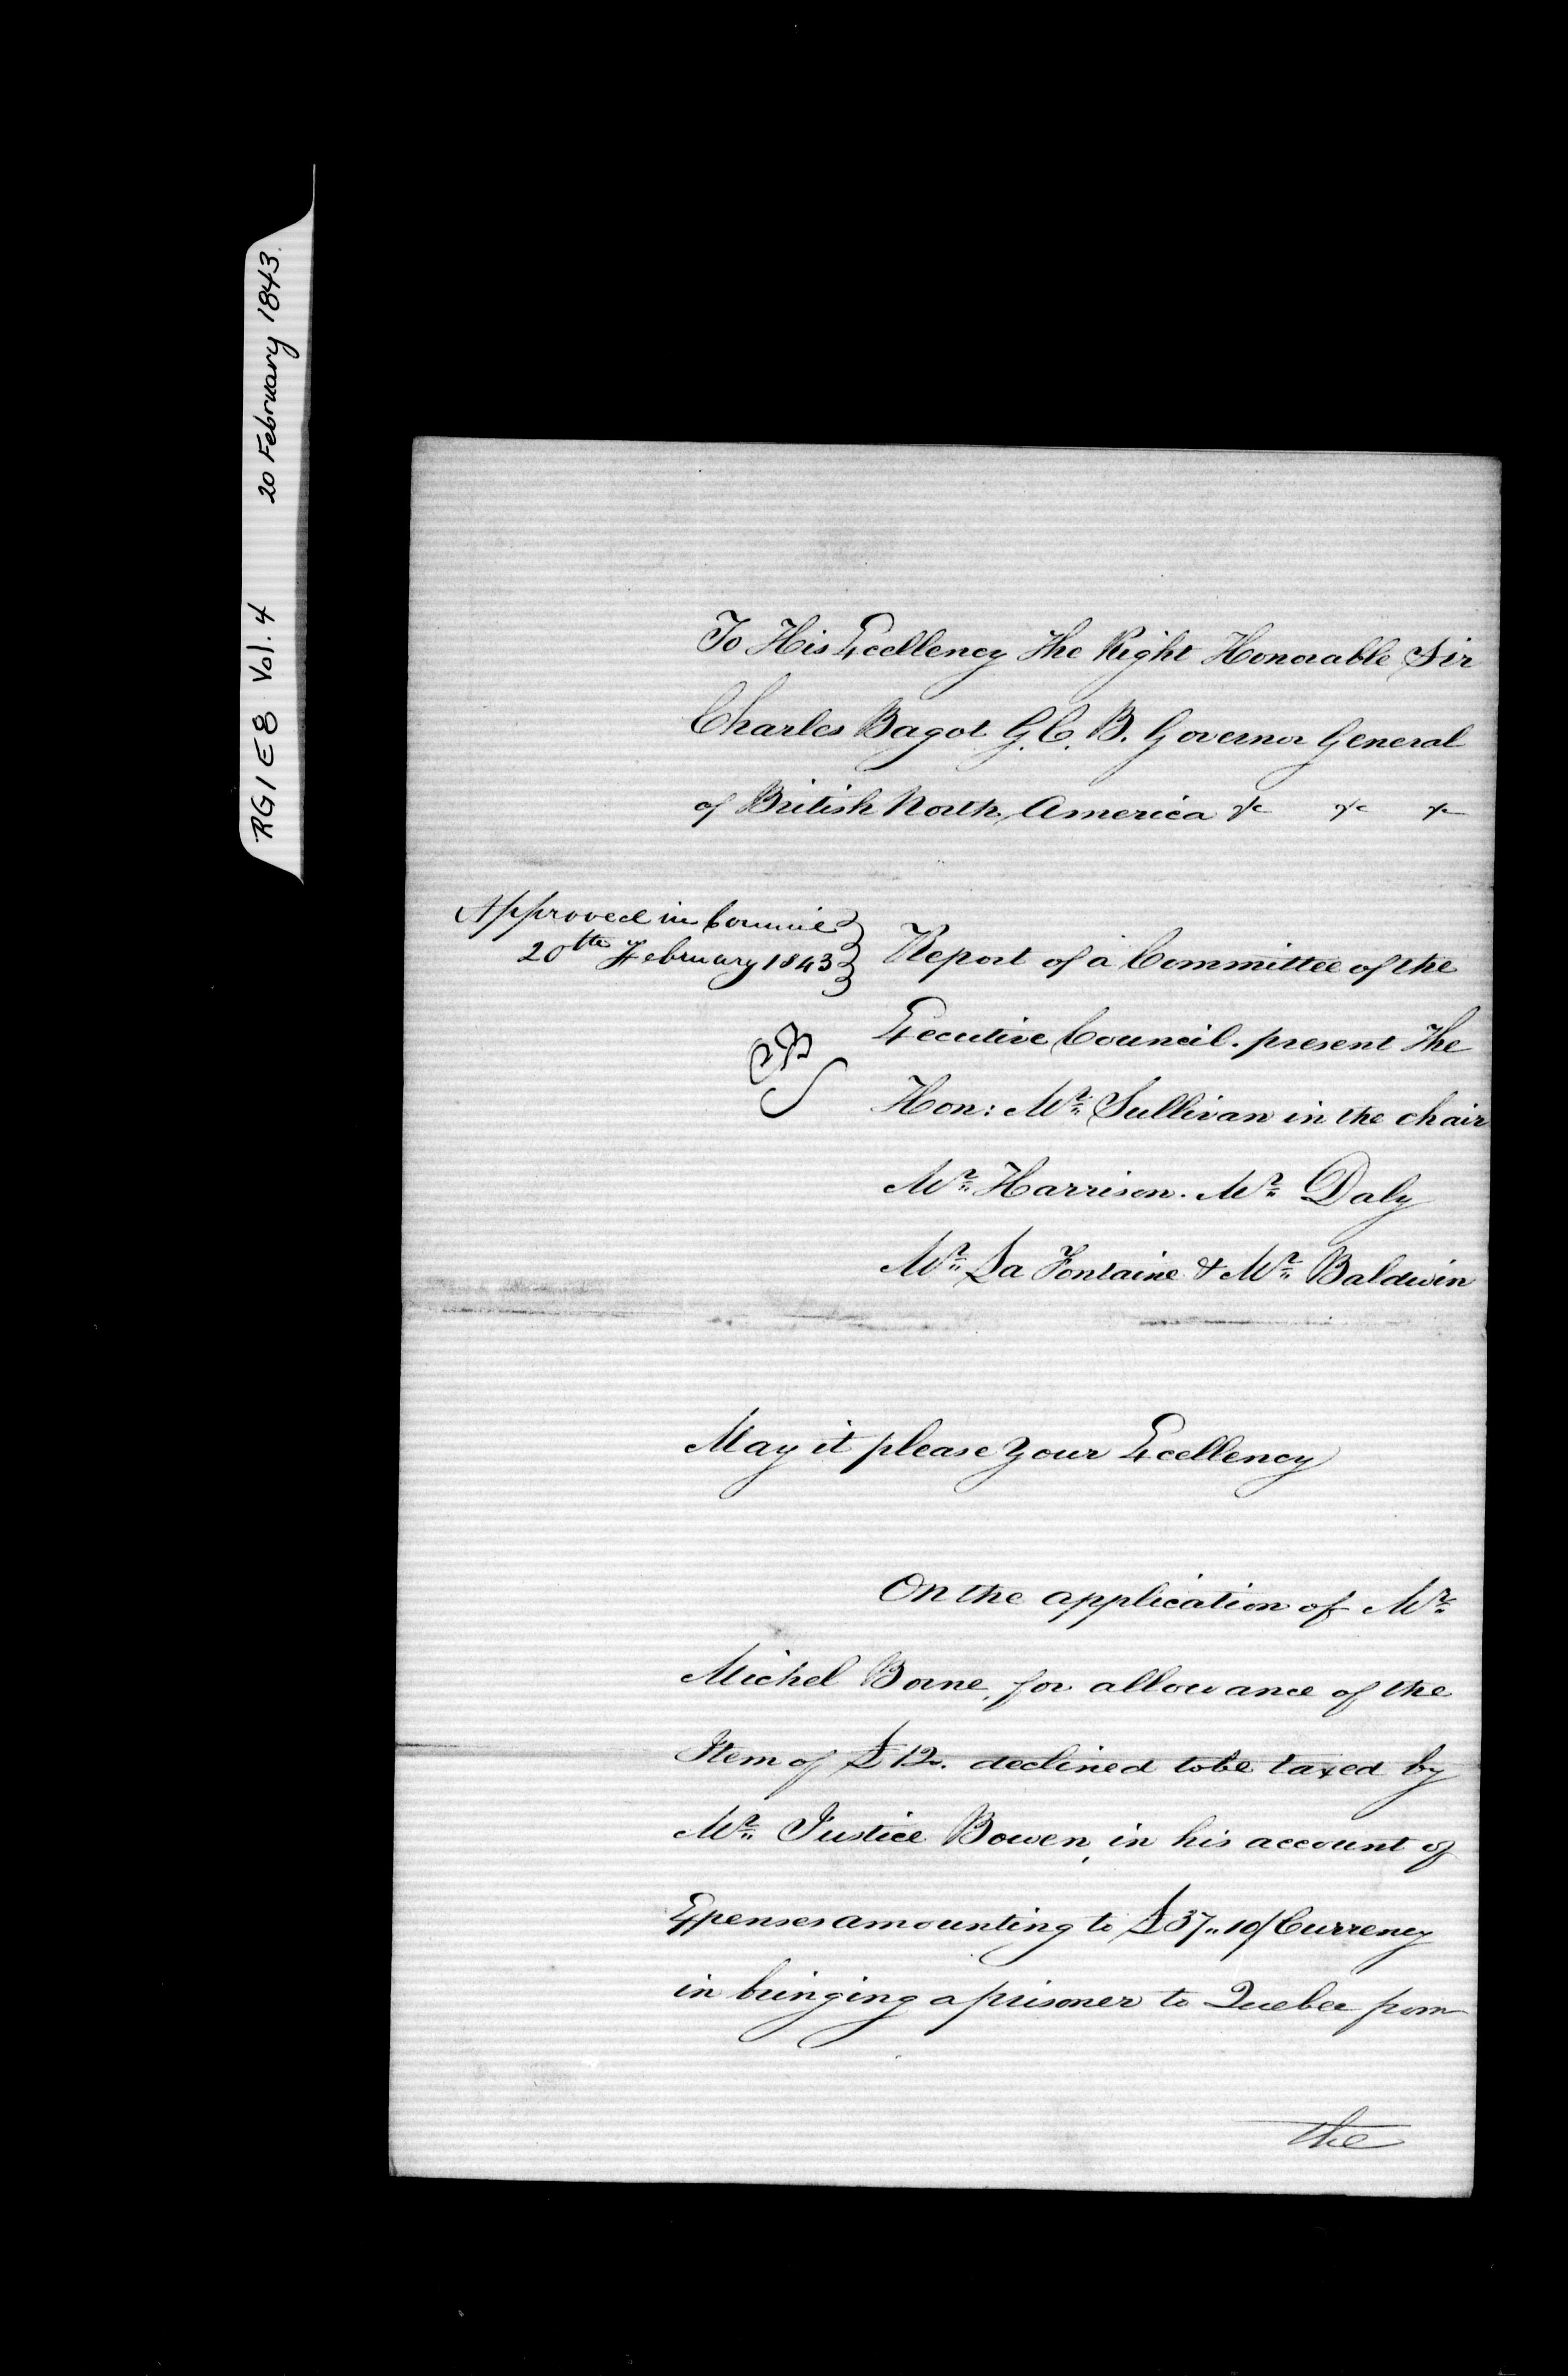 RG1 E8 Vol. 4 20 February 1843.
To His Excellency The Right Honorable Sir
Charles Bagot G.C.B. Governor General
of British North America &c &c &c
Approved in Council
20th February 1843
Report of a Committee of the
Executive Council. present The
Hon: Mr Sullivan in the chair
Mr Harrison. Mr Daly
Mr La Fontaine & Mr Baldwin
May it please Your Excellency
On the application of Mr
Michel Borne, for allowance of the
Item of £12. declined to be taxed by
Mr Justice Bowen, in his account of
Expenses amounting to £37.. 10/ Currency
in bringing a prisoner to Quebec from
the